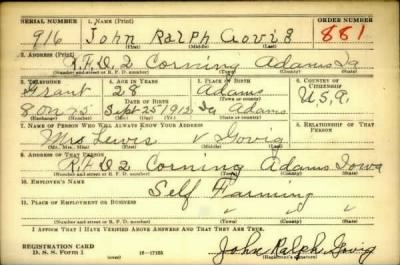 SERIAL NUMBER 1. NAME (Print) ORDER NUMBER
916 John Ralph Govig 881
(First) (Middle) (Last)
2. ADDRESS (Print)
R.F.D. 2 Corning Adams Ia
(Number and street or R. F. D. number) (Town) (County) (State)
3. TELEPHONE 4. AGE IN YEARS 5. PLACE OF BIRTH 6. COUNTRY OF CITIZENSHIP
Grant 28 Adams
DATE OF BIRTH (Town or county) U.S.A.
8 on 75 Sept 25 1912 Ia Adams
(Exchange) (Number) (Mo.) (Day) (Yr.) (State or country)
7. NAME OF PERSON WHO WILL ALWAYS KNOW YOUR ADDRESS 8. RELATIONSHIP OF THAT PERSON
Mrs Lewis V Govig
(Mr., Mrs., Miss) (First) (Middle) (Last)
9. ADDRESS OF THAT PERSON
R.F.D. 2 Corning Adams Iowa
(Number and street or R. F. D. number) (Town) (County) (State)
10. EMPLOYER'S NAME
Self Farming
11. PLACE OF EMPLOYMENT OR BUSINESS
" " "
(Number and street or R. F. D. number) (Town) (County) (State)
I AFFIRM THAT I HAVE VERIFIED ABOVE ANSWERS AND THAT THEY ARE TRUE.
REGISTRATION CARD
D. S. S. Form 1 (over) 16-17105 John Ralph Govig
(Registrant's signature)